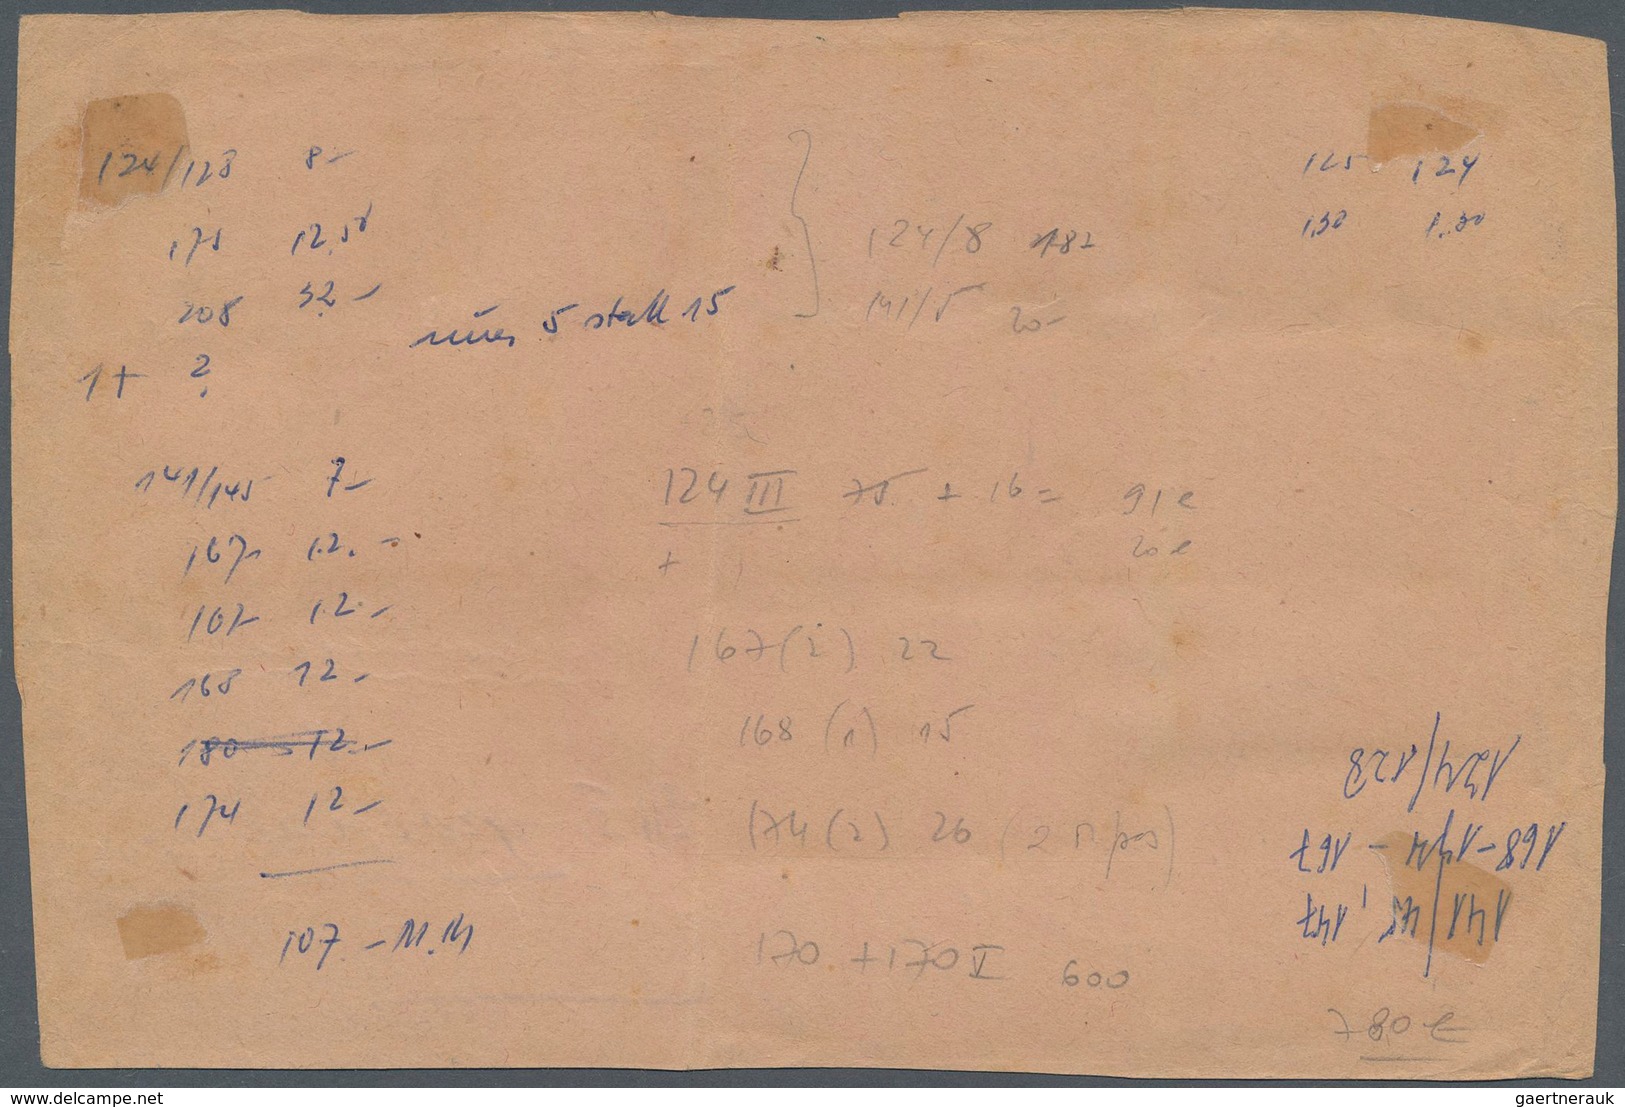 124/128 8-
175 12,50
208 32-
5 statt 15
1+ ?
141/145 7-
167 12.-
167 12.-
168 12-
180 12.-
174 12-
107.-
124/8 182
141/5 20-
125 124
1,30 1,30
124 III 75 + 16 = 91 e
+ 20 e
167 (2) 22
168 (1) 15
174 (2) 26 (2
170 + 170 V 600
124/128
168-174-167
141/45, 147
780 e
www.delcampe.net
gaertnerauk